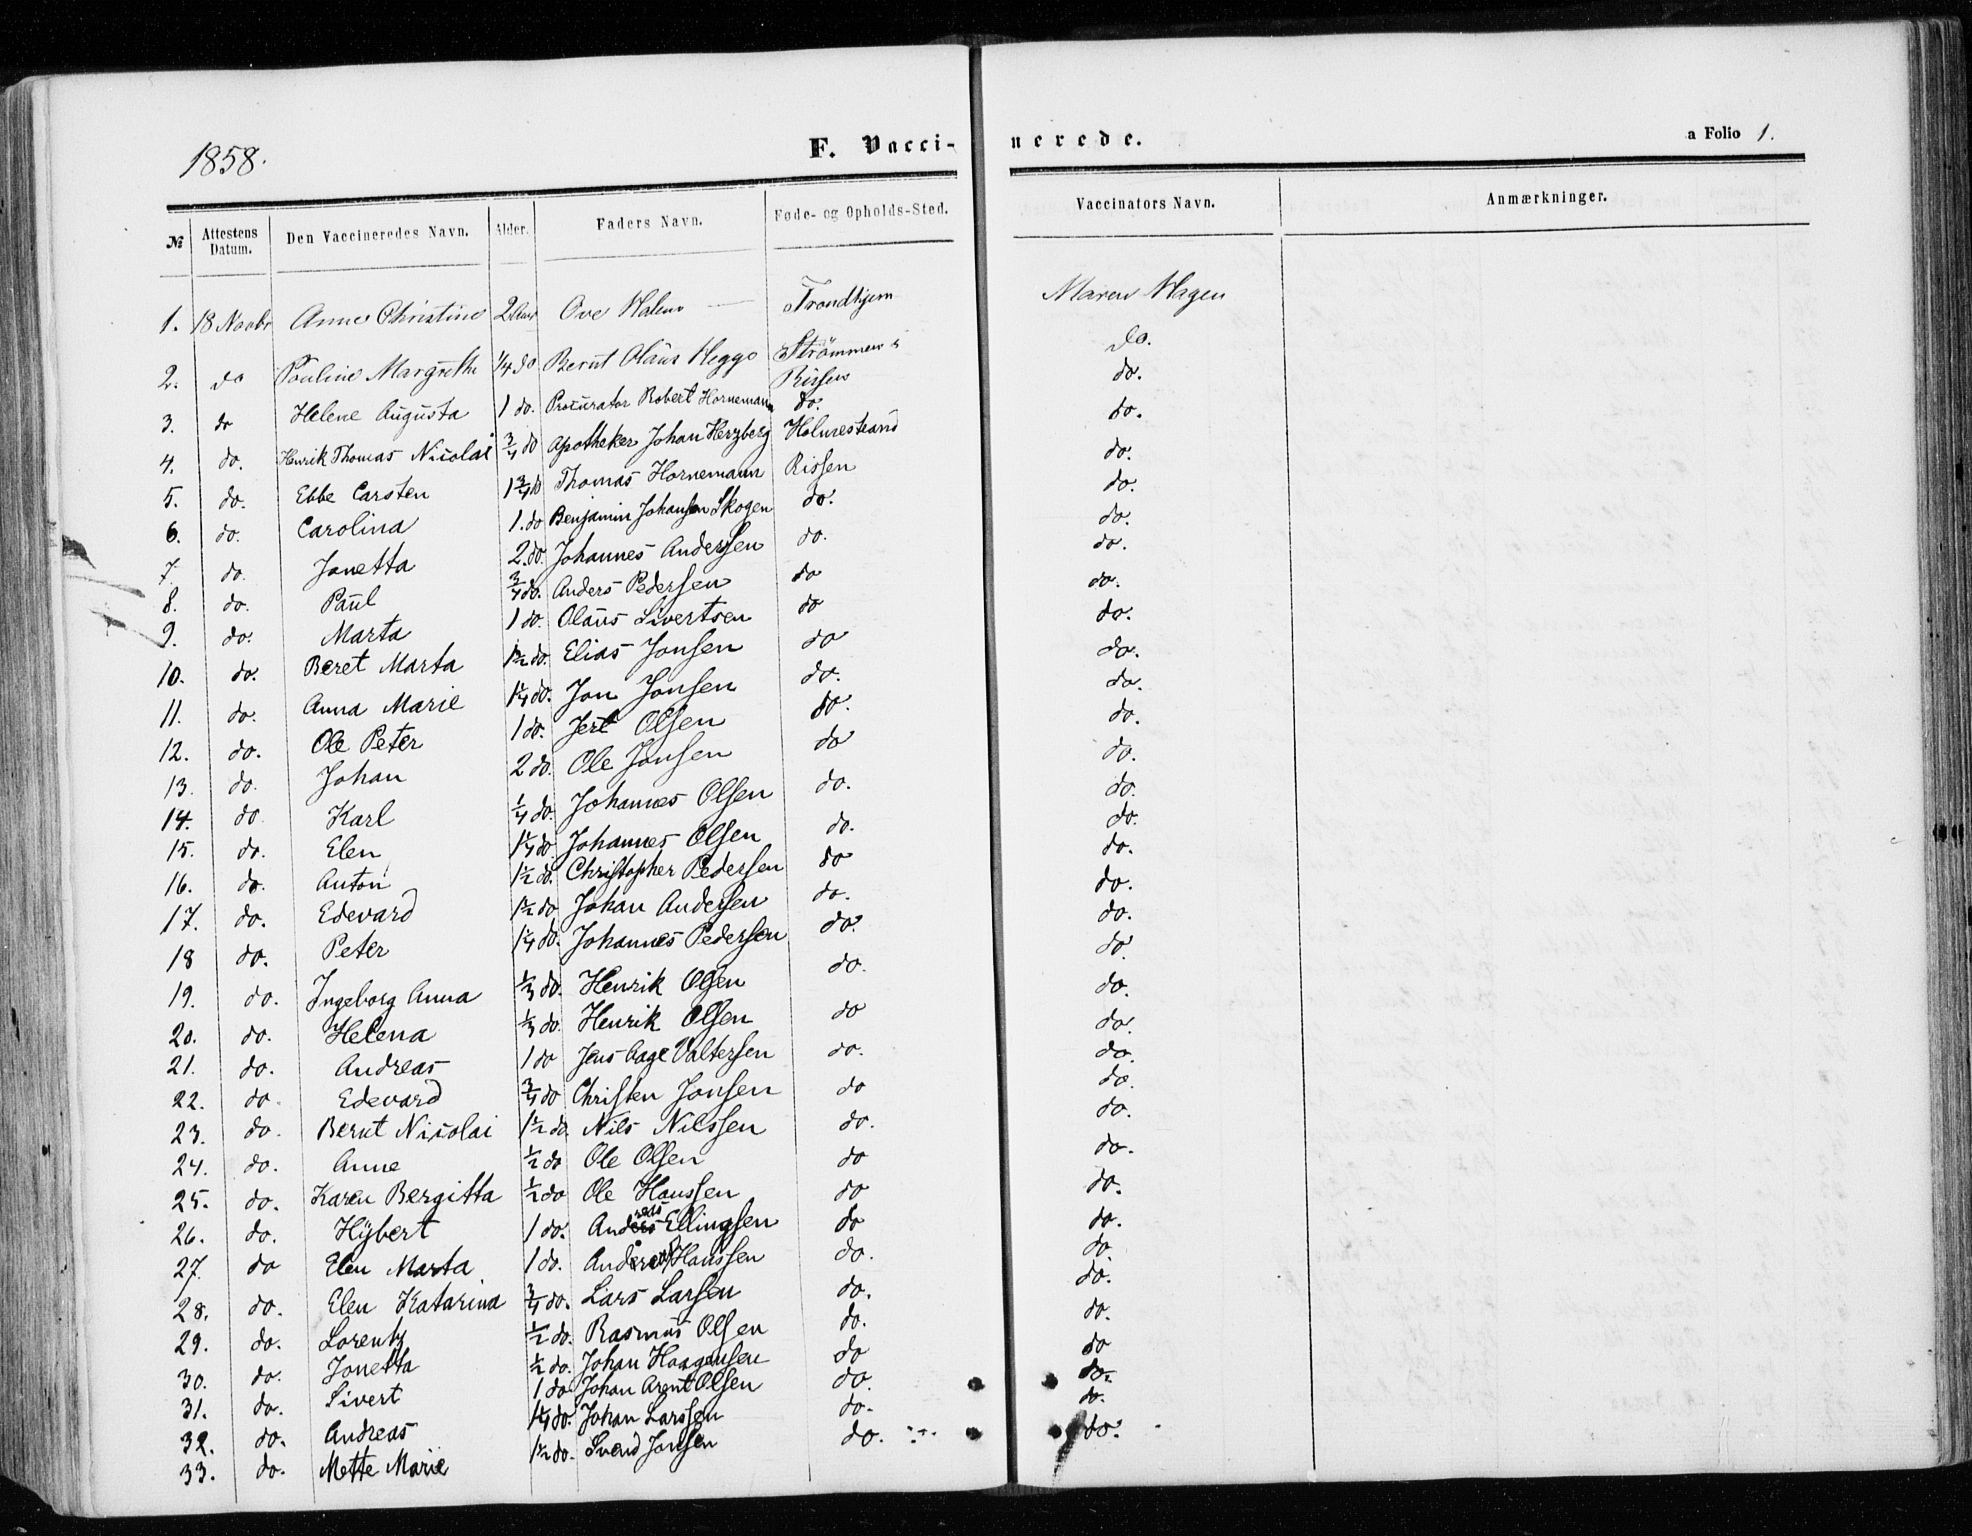 1858.
F. Vacci- nerede.
a Folio 1.
№ Attestens Datum. Den Vaccineredes Navn. Alder. Faders Navn. Føde- og Opholds-Sted. Vaccinators Navn. Anmærkninger.
1. 18 Novbr Anne Christine 2 Aar Ove Trondhjem Maren Hagen
2. do Pauline Margrethe 1/4 do Bernt Olaus Heggo Strömmen i Rissen do.
3. do Helene Augusta 1 do. Procurator Robert Hornemann do. do.
4. do. Henrik Thomas Nicolai 3/4 do Apotheker Johan Herzberg Holmestrand do.
5. do. Ebbe Carsten 1 3/4 do Thomas Hornemann Rissen do.
6. do. Carolina 1. do Benjamin Johansen Skogen do. do.
7. do. Jonetta 2. do. Johannes Andersen do. do.
8. do. Paul 3/4 do. Anders Pedersen do do.
9. do. Marta 1 do. Olaus Sivertsen do do.
10. do. Beret Marta 1 1/2 do. Elias Jonsen do do.
11. do. Anna Marie 1 1/4 do. Jon Jonsen do. do.
12. do. Ole Peter 1 do. Jert Olsen do. do.
13. do. Johan 2 do. Ole Jonsen do do.
14. do Karl 1/4 do. Johannes Olsen do. do.
15. do. Elen 1 1/4 do Johannes Olsen do. do.
16. do. Anton 1 1/2 do. Christopher Pedersen do do.
17. do. Edevard 1 1/2 do Johan Andersen do. do.
18 do. Peter 1 1/4 do. Johannes Pedersen do. do.
19. do. Ingeborg Anna 1/3 do. Henrik Olsen do. do.
20. do. Helena 1/3 do. Henrik Olsen do do.
21. do. Andreas 1 do Jens Aage Valtersen do. do.
22. do. Edevard 3/4 do Christen Jonsen do do.
23. do. Bernt Nicolai 1 1/2 do. Nils Nilssen do. do.
24. do. Anne 1/2 do Ole Olsen do do.
25. do. Karen Bergitta 1/2 do Ole Hanssen do do.
26. do. Hybert 1 do. Andreas Ellingsen do do.
27. do Elen Marta 1 do. Andreas Hanssen do. do.
28. do. Elen Katarina 3/4 do. Lars Larsen do. do.
29. do. Lorentz 1/2 do. Rasmus Olsen do. do.
30. do. Jonetta 1/2 do. Johan Haagensen do do
31. do. Sivert 1 do Johan Arent Olsen do. do.
32. do. Andreas 1 1/4 do. Johan Larssen do. do.
33. do. Mette Marie 1 1/2 do. Svend Jonsen do. do.